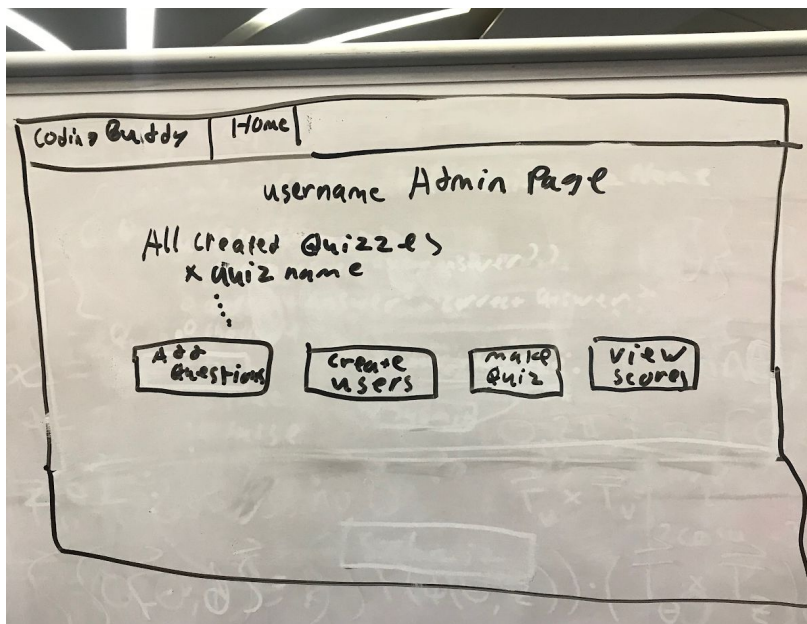 Coding Buddy Home
username Admin Page
All created Quizzes
x Quiz name
Add Questions
create users
make Quiz
view scores